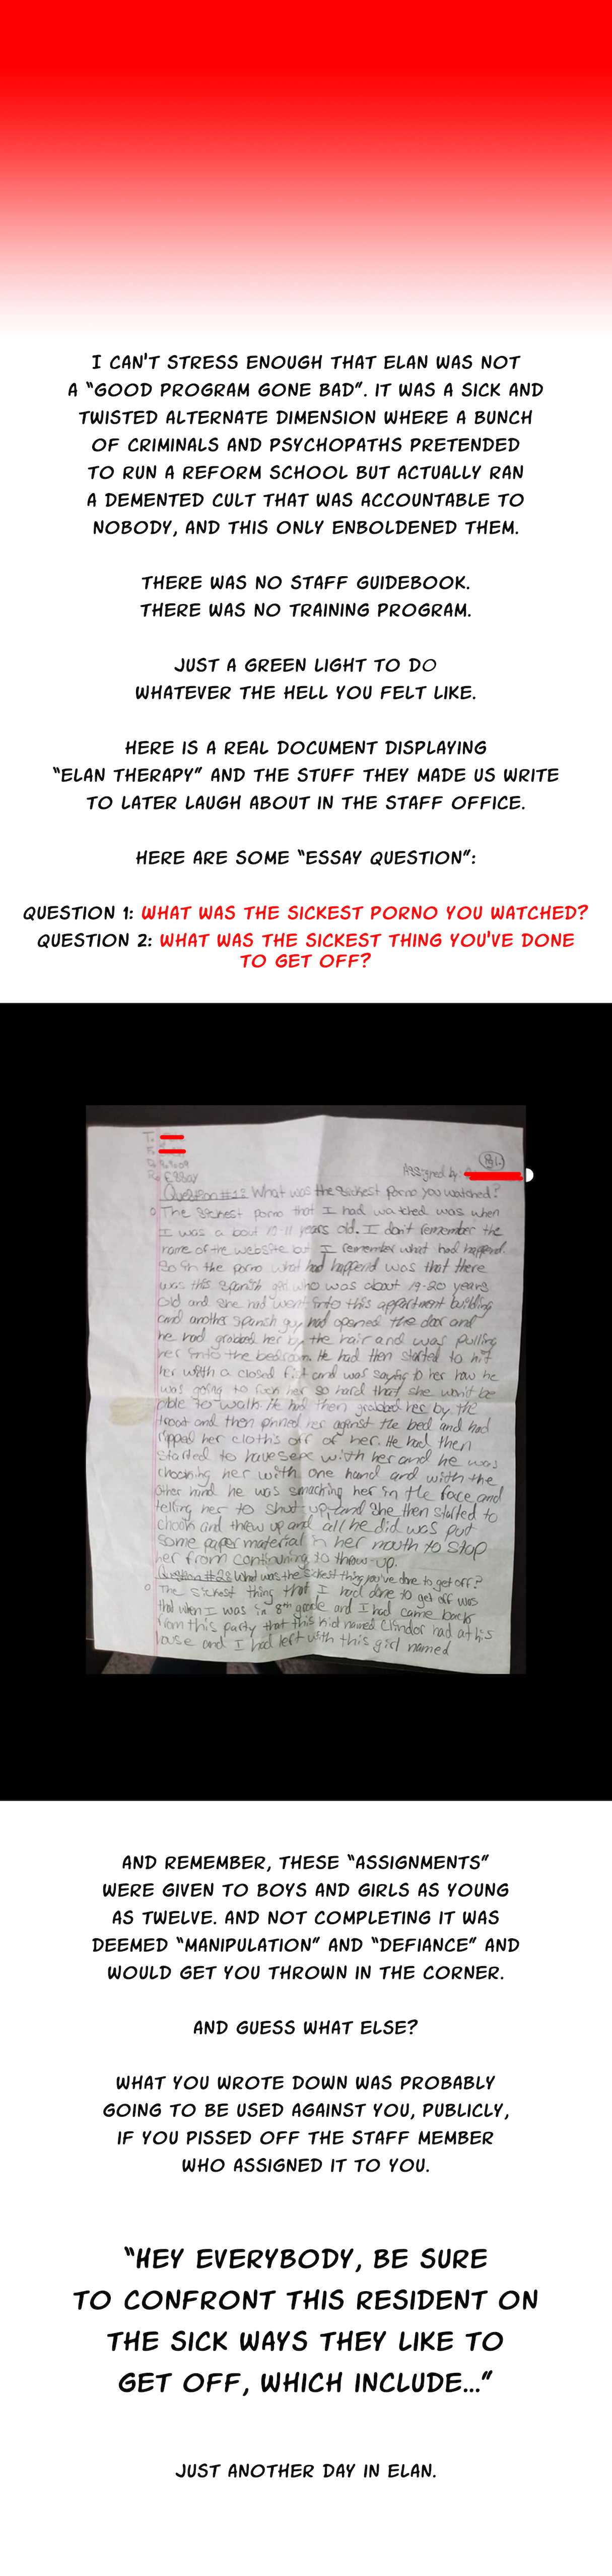 I CAN'T STRESS ENOUGH THAT ELAN WAS NOT
A "GOOD PROGRAM GONE BAD". IT WAS A SICK AND
TWISTED ALTERNATE DIMENSION WHERE A BUNCH
OF CRIMINALS AND PSYCHOPATHS PRETENDED
TO RUN A REFORM SCHOOL BUT ACTUALLY RAN
A DEMENTED CULT THAT WAS ACCOUNTABLE TO
NOBODY, AND THIS ONLY ENBOLDENED THEM.
THERE WAS NO STAFF GUIDEBOOK.
THERE WAS NO TRAINING PROGRAM.
JUST A GREEN LIGHT TO DO
WHATEVER THE HELL YOU FELT LIKE.
HERE IS A REAL DOCUMENT DISPLAYING
"ELAN THERAPY" AND THE STUFF THEY MADE US WRITE
TO LATER LAUGH ABOUT IN THE STAFF OFFICE.
HERE ARE SOME "ESSAY QUESTION":
QUESTION 1: WHAT WAS THE SICKEST PORNO YOU WATCHED?
QUESTION 2: WHAT WAS THE SICKEST THING YOU'VE DONE
TO GET OFF?
T.
F.
Essay
Assigned by:
Question #1: What was the sickest Porno you watched?
The sickest porno that I had watched was when
I was a bout 10-11 years old. I don't remember the
name of the website but I remember what had happend.
So in the porno what had happend was that there
was this Spanish girl who was about 19-20 years
old and she had went into this appartment building
and another Spanish guy had opened the door and
he had grabbed her by the hair and was pulling
her into the bedroom. He had then started to hit
her with a closed fist and was saying to her how he
was going to fuck her so hard that she won't be
able to walk. He had then grabbed her by the
throat and then pinned her aginst the bed and had
ripped her cloths off of her. He had then
started to have sex with her and he was
chocking her with one hand and with the
other hand he was smacking her in the face and
telling her to shut-up, and She then started to
chock and threw up and all he did was put
some paper material in her mouth to stop
her from continuing to throw-up.
Question #2: What was the sickest thing you've done to get off?
The sickest thing that I had done to get off was
that when I was in 8th grade and I had came back
from this party that this kid named had at his
house and I had left with this girl named
AND REMEMBER, THESE "ASSIGNMENTS"
WERE GIVEN TO BOYS AND GIRLS AS YOUNG
AS TWELVE. AND NOT COMPLETING IT WAS
DEEMED "MANIPULATION" AND "DEFIANCE" AND
WOULD GET YOU THROWN IN THE CORNER.
AND GUESS WHAT ELSE?
WHAT YOU WROTE DOWN WAS PROBABLY
GOING TO BE USED AGAINST YOU, PUBLICLY,
IF YOU PISSED OFF THE STAFF MEMBER
WHO ASSIGNED IT TO YOU.
"HEY EVERYBODY, BE SURE
TO CONFRONT THIS RESIDENT ON
THE SICK WAYS THEY LIKE TO
GET OFF, WHICH INCLUDE..."
JUST ANOTHER DAY IN ELAN.